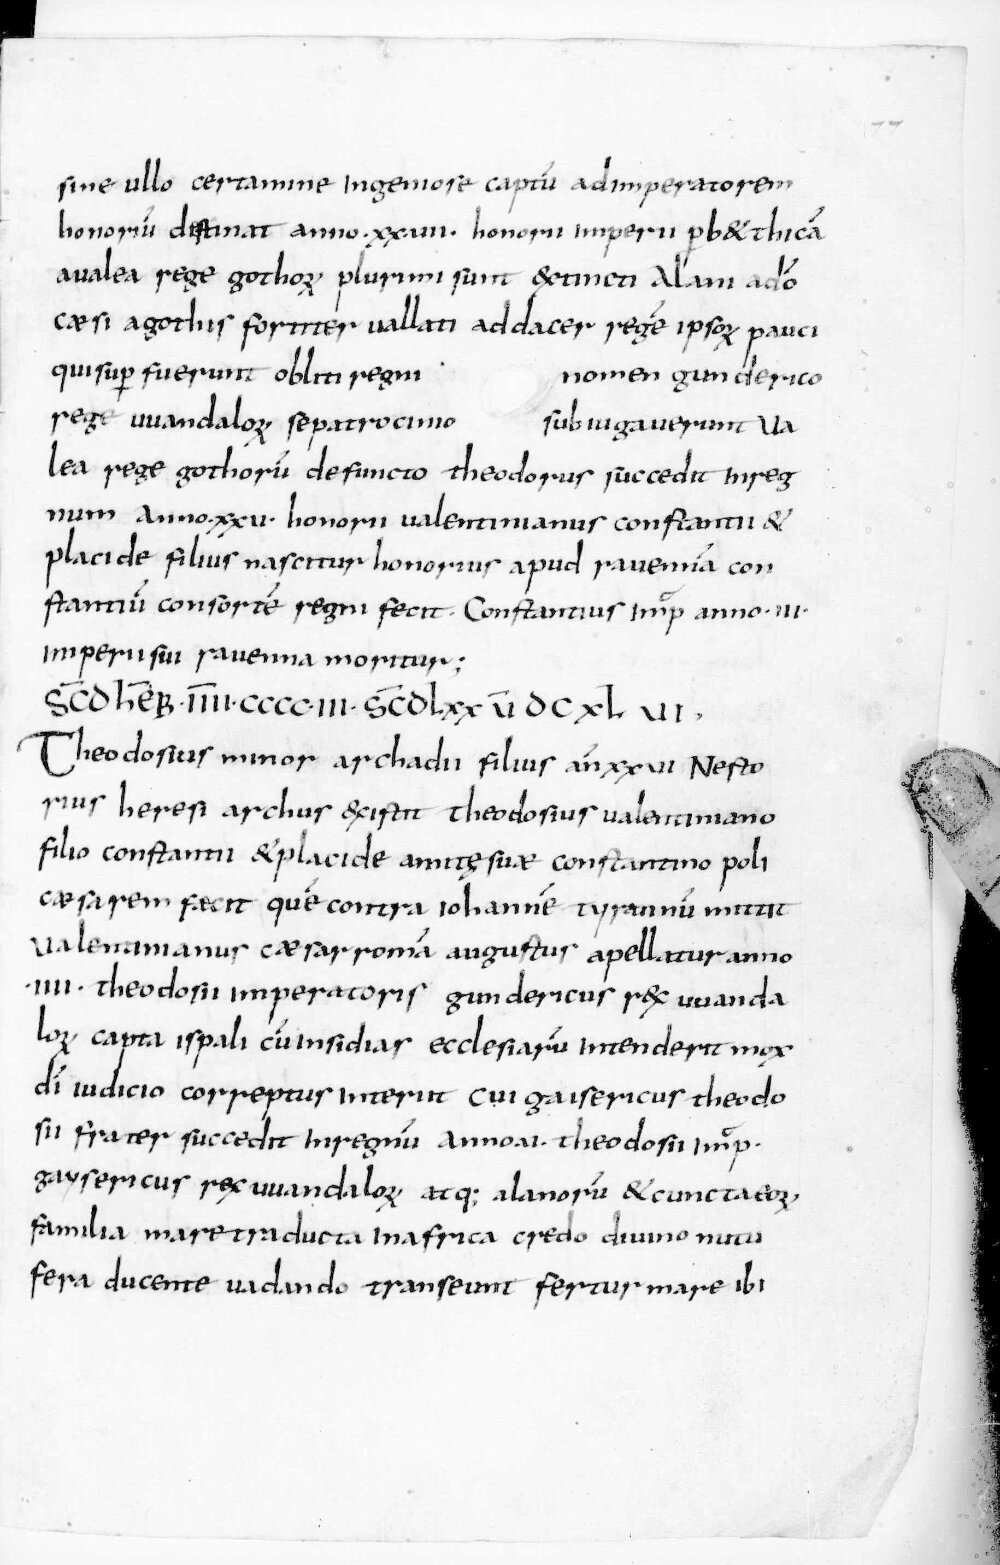 77
sine ullo certamine ingeniose captū ad imperatorem
honoriū destinat anno · xxuii · honorii imperii p b&thicā
a ualea rege gothoꝝ plurimi sunt &xtincti Alani adō
cæsi a gothis fortiter uallati addacer regē ipsoꝝ pauci
qui suꝑ fuerunt obliti regni nomen gunderico
rege uuandaloꝝ se patrocinio subiugauerunt Ua
lea rege gothorū defuncto theodorus succedit in reg
num Anno · xxu · honorii ualentinianus constantii &
placide filius nascitur honorius apud rauennā con
stantiū consortē regni fecit · Constantius imꝑ anno · iii ·
imperii sui rauenna moritur ;
S̄C̄D̄ h̄ēb̄ · īīīī · cccc · iii · S̄C̄D̄ lxx ū dcxl ui .
Theodosius minor archadii filius an̄ xxui Nesto
rius heresiarchus &xistit theodosius ualentiniano
filio constantii & placide amitę suæ constantinopoli
cæsarem fæcit quē contra iohannē tyrannū mittit
Ualentinianus cæsar romā augustus apellatur anno
· iiii · theodosii imperatoris gundericus rex uuanda
loꝝ capta ispali cū insidias ecclesiarū intenderit mox
dī iudicio correptus interiit cui gaisericus theodo
sii frater succedit in regnū Anno ui · theodosii imꝑ ·
gaysericus rex uuandaloꝝ atq; alanorū & cuncta eoꝝ
familia mare traducta in africa credo diuino nutu
fera ducente uadando transeunt fertur mare ibi